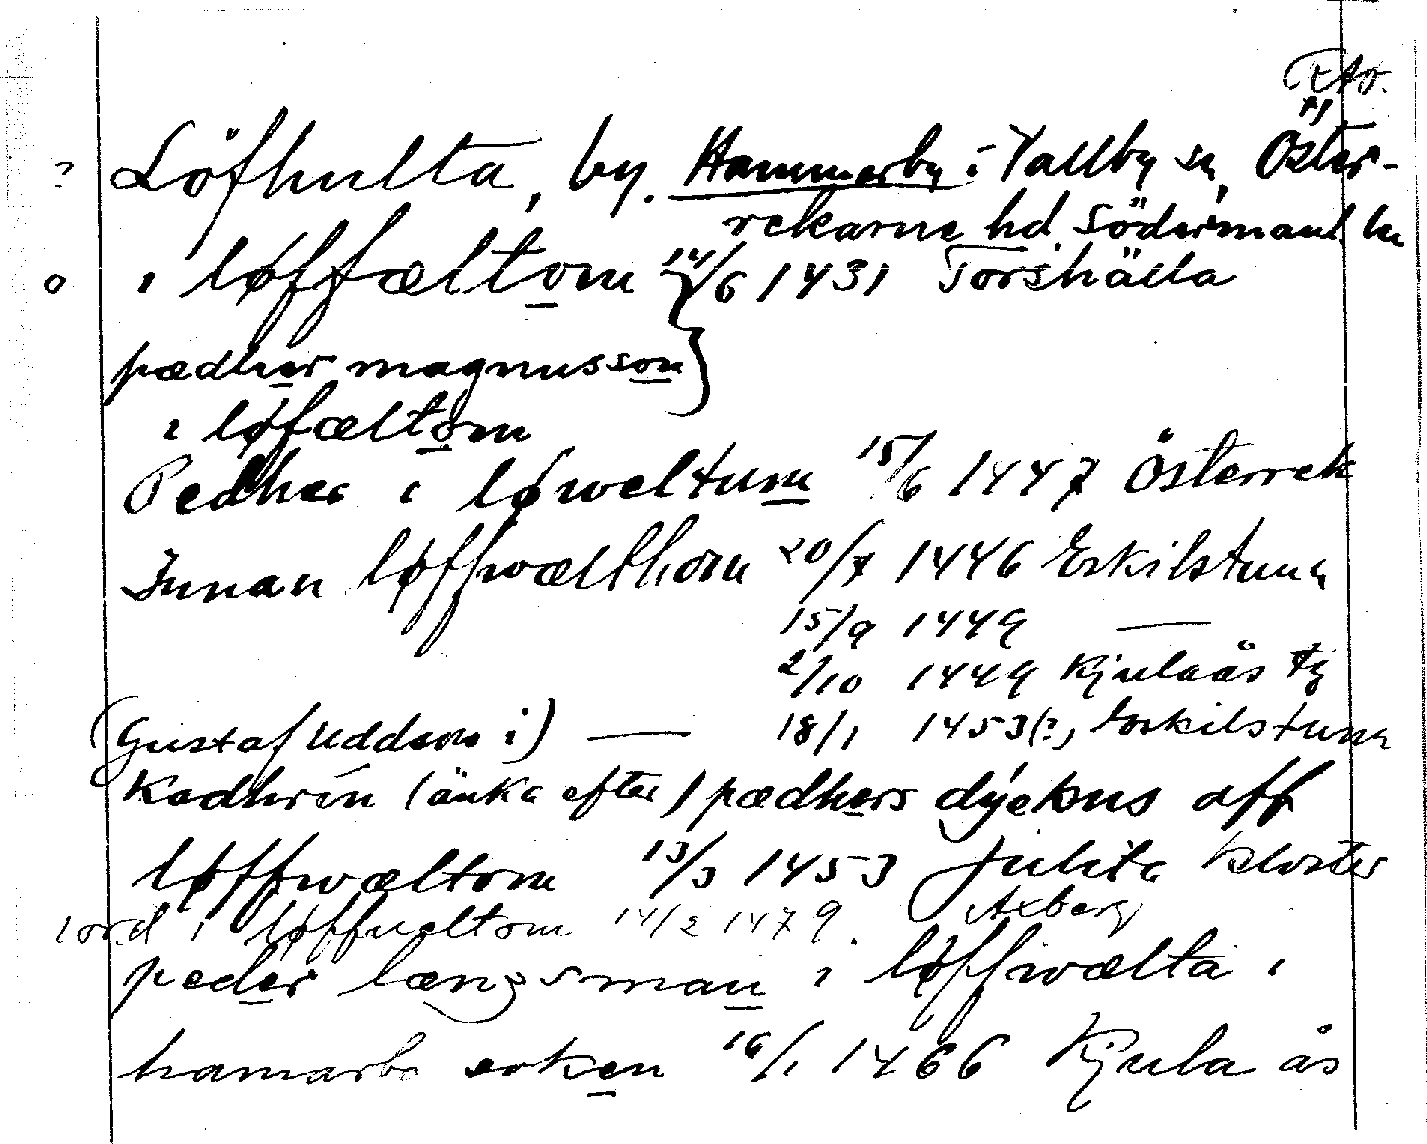 RAö.
? Löfhulta, by. Hammerby i Vallby sn, Öster-
rekarne hd. Södermanl. län
o i løffæltom 14/6 1431 Torshälla
pædher magnusson
i løfæltom
Pedher i løweltum 15/6 1447 Österrek
Innan løffwælthom 20/7 1446 Eskilstuna
15/9 1449 —
2/10 1449 Kjulaås tg
(Gustaf uddson i) — 18/1 1453(?) Eskilstuna
Kadhrin (änka efter) pædhers dyeknus aff
løffwæltom 13/3 1453 Julita kloster
jord i løffueltom 14/2 1479. Axberg
peder længsman i løffwælta i
hamarbo soken 16/1 1466 Kjula ås